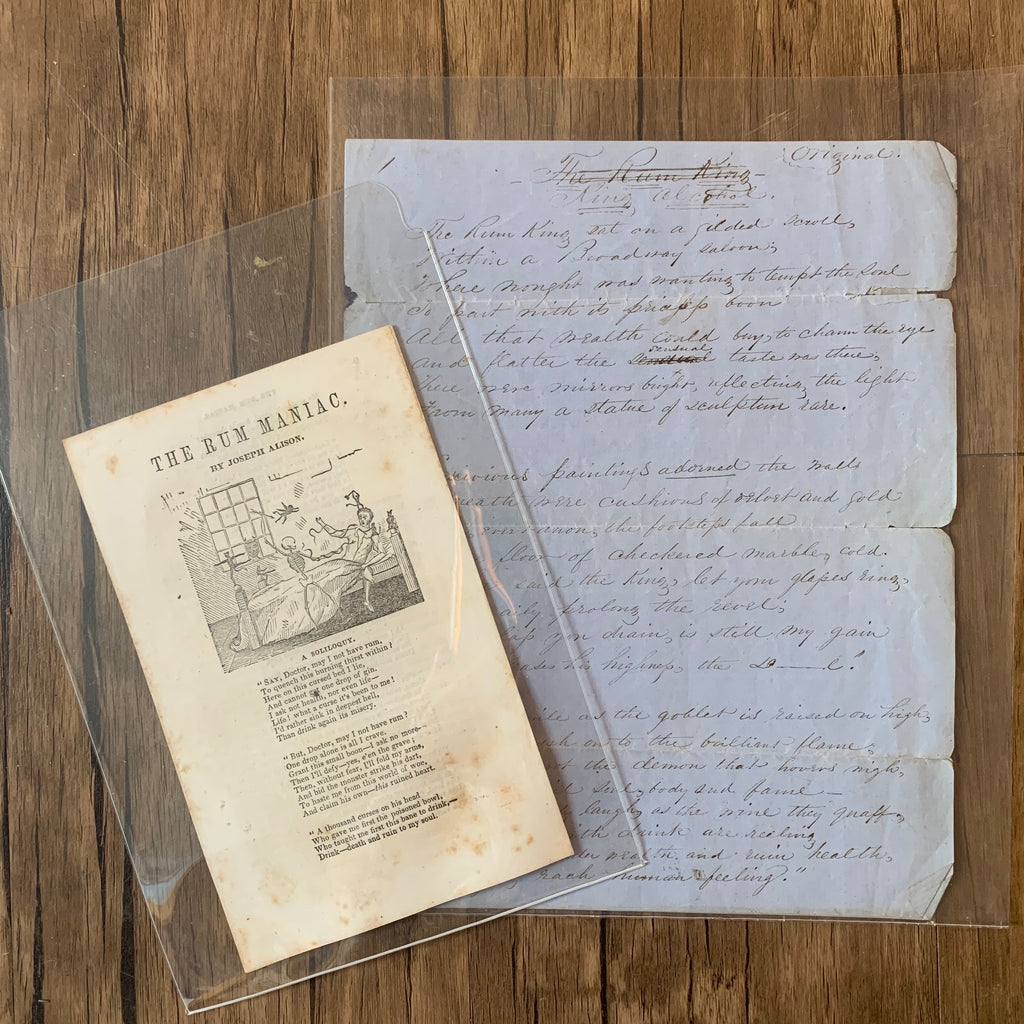 THE RUM MANIAC.
BY JOSEPH ALISON.
A SOLILOQUY.
"SAY, Doctor, may I not have rum,
To quench this burning thirst within?
Here on this cursed bed I lie,
And cannot get one drop of gin.
I ask not health, nor even life—
Life! what a curse it's been to me!
I'd rather sink in deepest hell,
Than drink again its misery.
"But, Doctor, may I not have rum?
One drop alone is all I crave.
Grant this small boon—I ask no more—
Then I'll defy—yes, e'en the grave;
Then, without fear, I'll fold my arms,
And bid the monster strike his dart,
To haste me from this world of woe,
And claim his own—this ruined heart.
"A thousand curses on his head
Who gave me first the poisoned bowl,
Who taught me first this bane to drink,—
Drink—death and ruin to my soul.
1
Original.
- The Rum King -
King Alcohol.
The Rum King, sat on a gilded scroll,
Within a Broadway saloon;
Where nought was wanting to tempt the soul
To part with its boon
All that wealth could buy, to charm the eye
And flatter the sensual taste was there,
There were mirrors bright, reflecting, the light
From many a statue of sculpture rare.
paintings adorned the walls
were cushions of velvet and gold
the footsteps fall
floor of checkered marble, cold.
said the King, let your glasses ring,
prolong the revel;
you drain, is still my gain
his highness, the D——l!
as the goblet is raised on high,
on to the brilliant flame,
the demon that hovers nigh,
soul, body and fame—
laugh, as the wine they quaff,
drink are reeling
wealth and ruin health,
each human feeling."